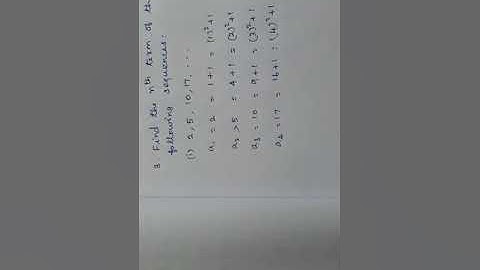 3. Find the nth term of th
following sequences:
(i) 2, 5, 10, 17, ...
a₁ = 2 = 1+1 = (1)²+1
a₂ = 5 = 4+1 = (2)²+1
a₃ = 10 = 9+1 = (3)²+1
a₄ = 17 = 16+1 = (4)²+1